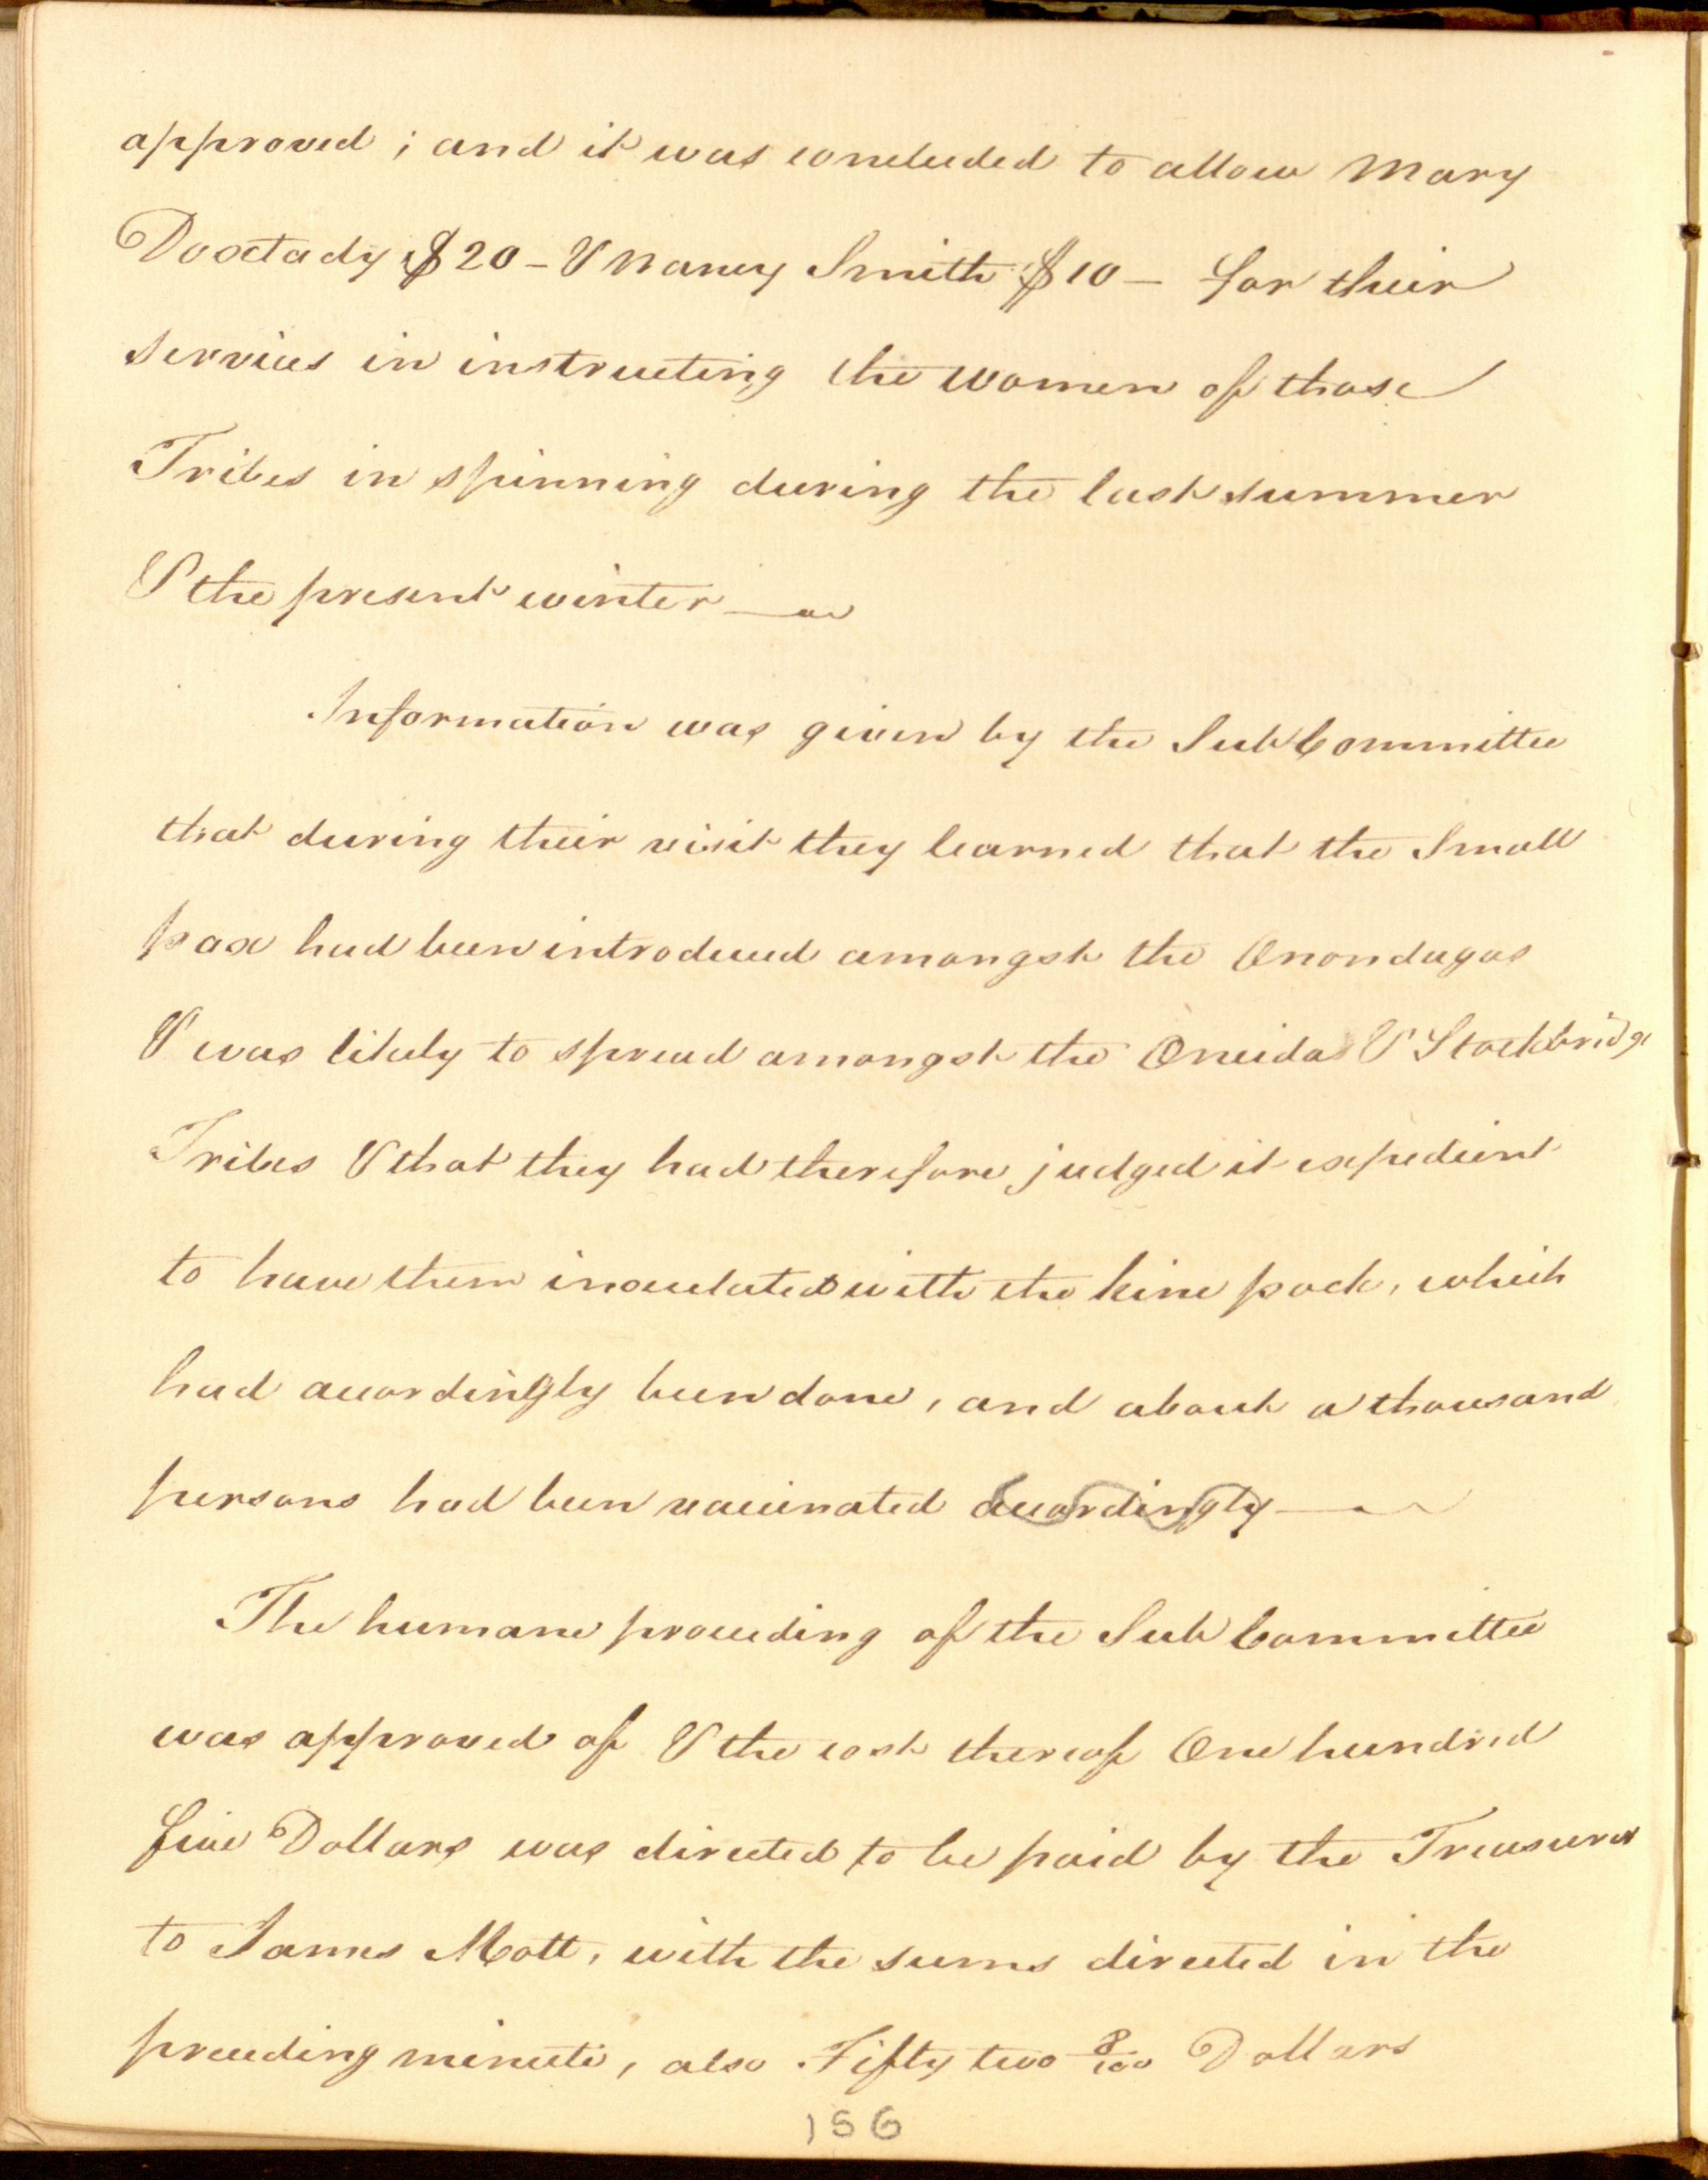 approved ; and it was concluded to allow Mary
Doxtady $20 - & Nancy Smith $10 - for their
services in instructing the women of those
Tribes in spinning during the last summer
& the present winter —
Information was given by the Sub Committee
that during their visit they learned that the Small
pox had been introduced amongst the Onondagas
& was likely to spread amongst the Oneida & Stockbridge
Tribes & that they had therefore judged it expedient
to have them inoculated with the kine pock, which
had accordingly been done, and about a thousand
persons had been vaccinated accordingly —
The humane proceeding of the Sub Committee
was approved of & the cost thereof One hundred
five Dollars was directed to be paid by the Treasurer
to James Mott, with the sums directed in the
preceeding minute, also Fifty two 8/100 Dollars
156